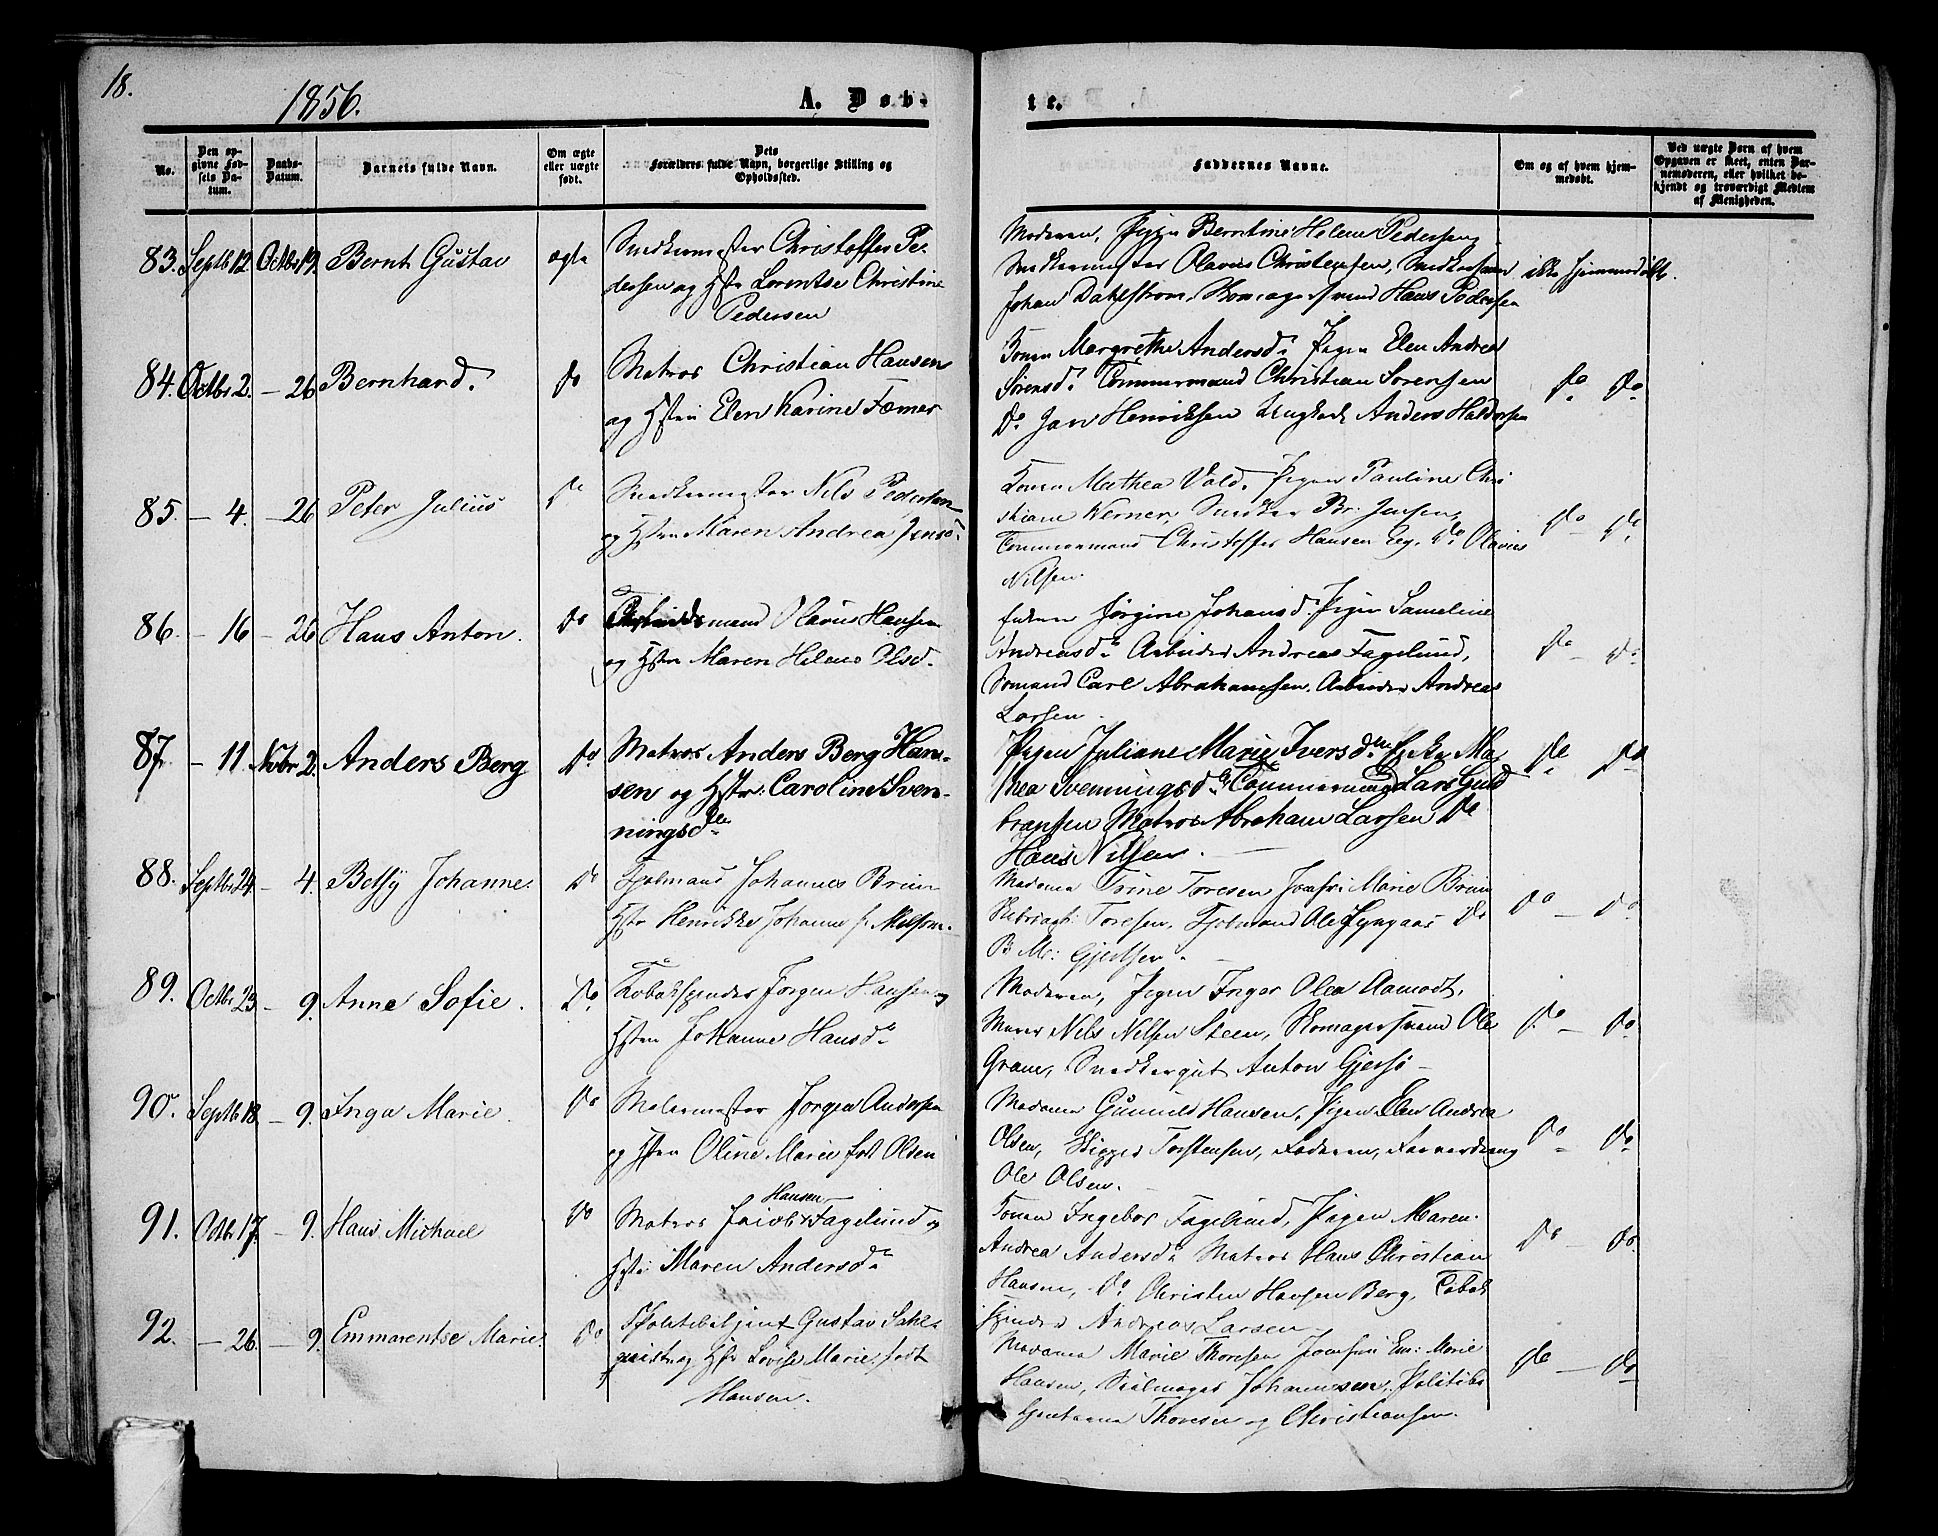 18.
1856.
A. Døb-
te.
No.
Den op-
givne Fød-
sels Da-
tum.
Daabs-
Datum.
Barnets fulde Navn.
Om ægte
eller uægte
født.
Dets
Forældres fulde Navn, borgerlige Stilling og
Opholdssted.
Faddernes Navne.
Om og af hvem hjem-
medøbt.
Ved uægte Børn af hvem
Opgaven er skeet, enten Bar-
nemoderen, eller hvilket be-
kjendt og troværdigt Medlem
af Menigheden.
83. Septbr 12. Octbr 19. Bernt Gustav ægte
Snedkermester Christoffer Pe-
dersen og Hstr Lorentse Christine
Pedersen
Moderen, Pigen Berntine Helene Pedersen
Snedkermester Olavus Christensen, Snedkersvend
Johan Dahlstrøm, Hans Pedersen
ikke hjemmedøbt.
84. Octbr 2. - 26 Bernhard. Do
Matros Christian Hansen
og Hstru Elen Karine Tømer
Konen Margrethe Andersd. Pigen Elen Andrea
Sørensd. Tømmermand Christian Sørensen
Do Jan Henriksen Anders Haldorsen
Do Do
85. - 4. - 26 Peter Julius Do
Snedkermester Nils Pedersen
og Hstru Maren Andrea Jensd.
Konen Mathea Vold. Pigen Pauline Chri
stiane Werner, Snedker Br. Jensen,
Tømmermand Christoffer Hansen Eeg. Do Olavus
Nilsen.
Do - Do
86. - 16 - 26 Hans Anton. Do
Arbeidsmand Olavus Hansen
og Hstru Maren Helene Olsd.
Enken Jørgine Johansd. Pigen Sameline
Andreasd. Arbeider Andreas Fagelund,
Sømand Carl Abrahamsen. Arbeider Andreas
Larsen.
Do - Do
87. - 11 Novbr 2. Anders Berg Do
Matros Anders Berg Han-
sen og Hstr. Caroline Sven-
ningsd.
Pigen Juliane Marie Iversd. Ma-
thea Svenningsd. Tømmermand Lars Guld
bransen Matros Abraham Larsen Do
Hans Nilsen.
Do Do
88. Septbr 24. - 4. Betsy Johanne. Do
Johannes Bruun
Hstr Henrikke Johanne f.
Madame Trine Toresen Jomfru Marie Bruun
Toresen, Ole Do
B M: Gjertsen.
Do - Do
89. Octbr 23 - 9. Anne Sofie. Do
Tobakspinder Jørgen Hansen og
Hstru Johanne Hansd.
Moderen, Pigen Inger Olea Aamodt,
Murer Nils Nilsen Steen, Ole
Grane, Snedkergut Anton Gjersø -
Do - Do
90. Septbr 18. - 9. Inga Marie. Do
Malermester Jørgen Andersen
og Hstru Oline Marie født Olsen
Madame Gunnild Hansen, Pigen Elen Andrea
Olsen, Skipper Torstensen, Faderen,
Ole Olsen.
Do Do
91. Octbr 17. - 9. Hans Michael Do
Hansen
Matros Jacob Fagelund og
Hstr Maren Andersd.
Konen Ingebor Fagelund, Pigen Maren
Andrea Andersd. Matros Hans Christian
Hansen, Do Christen Hansen Berg, Tobak
spinder Andreas Larsen.
Do - Do.
92. - 26. - 9. Emmarentse Marie. Do
Politibetjent Gustav Sahl-
quist og Hstr Lovise Marie født
Hansen.
Madame Marie Thoresen Jomfru Em: Marie
Hansen, Johannessen, Politibe
tjenterne Thoresen og Christiansen.
Do - Do